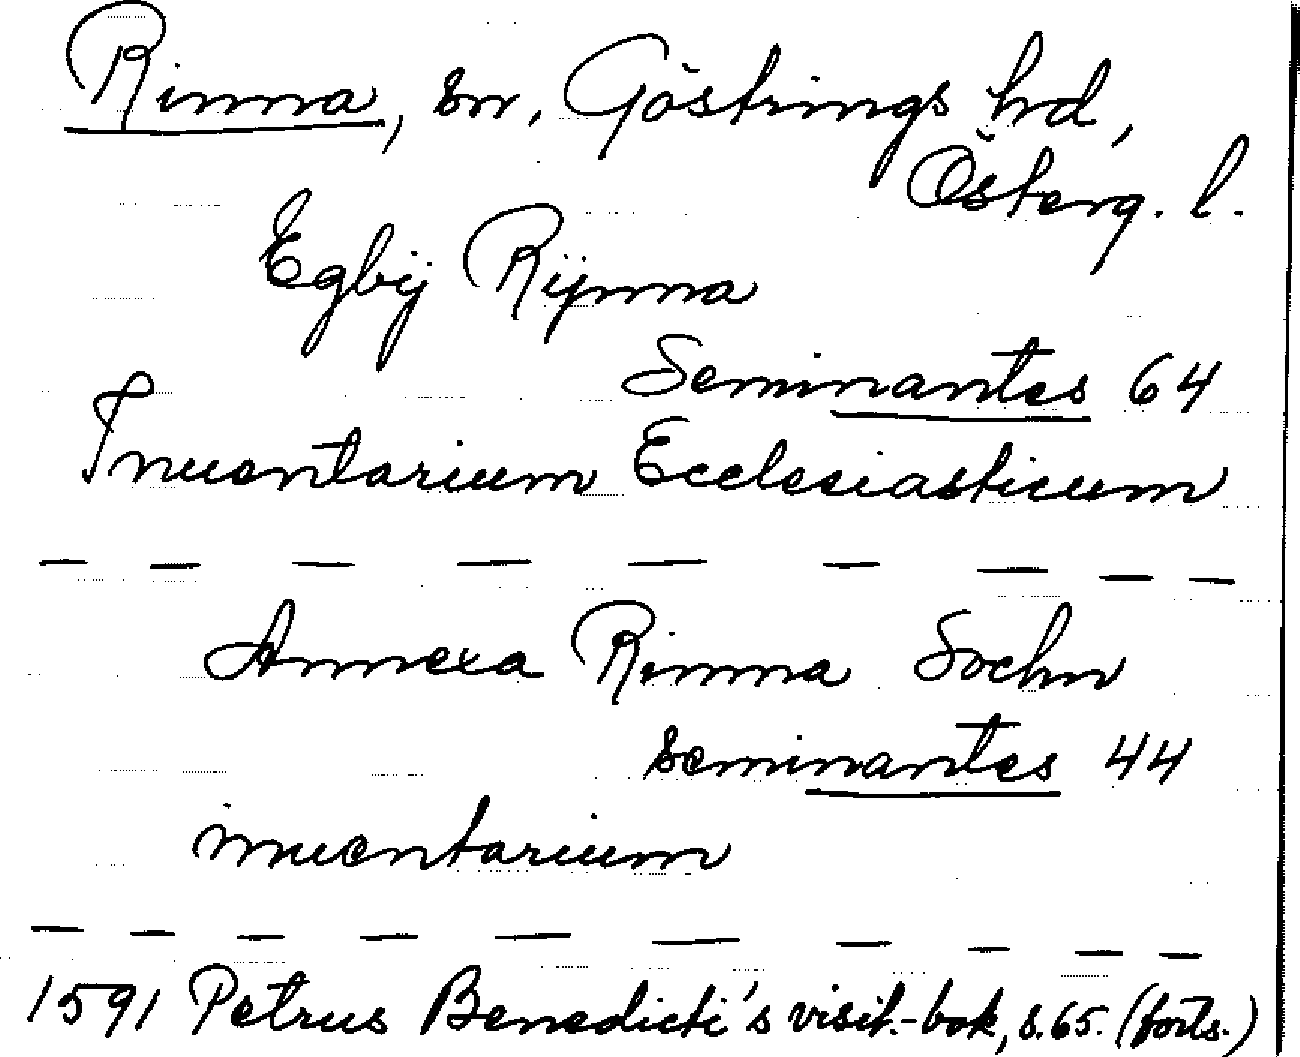 Rinna, sn, Göstrings hd,
Österg. l.
Egbÿ Rÿnna
Seminantes 64
Inuentarium Ecclesiasticum
— — — — — — — — —
Annexa Rinna Sochn
seminantes 44
inuentarium
— — — — — — — — — —
1591 Petrus Benedicti's visit.-bok, s. 65. (forts.)